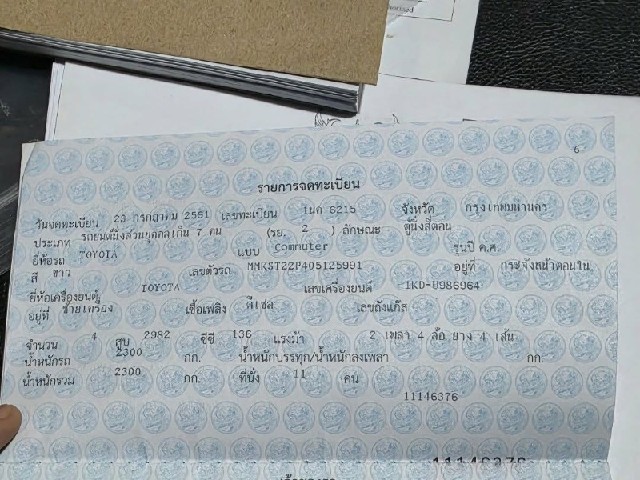 6
รายการจดทะเบียน
วันจดทะเบียน 23 กรกฎาคม 2551 เลขทะเบียน 6215 จังหวัด กรุงเทพมหานคร
ประเภท รถยนต์นั่งส่วนบุคคลเกิน 7 คน (รย. 2 ) ลักษณะ ตู้นั่งสี่ตอน
ยี่ห้อรถ TOYOTA แบบ Commuter รุ่นปี ค.ศ.
สี ขาว เลขตัวรถ อยู่ที่
ยี่ห้อเครื่องยนต์ TOYOTA เลขเครื่องยนต์
อยู่ที่ เชื้อเพลิง ดีเซล เลขถังแก๊ส
จำนวน 4 สูบ 2982 ซีซี 136 แรงม้า 2 เพลา 4 ล้อ ยาง 4 เส้น
น้ำหนักรถ 2300 กก. น้ำหนักบรรทุก/น้ำหนักลงเพลา กก
น้ำหนักรวม 2300 กก. ที่นั่ง 11 คน
11146376